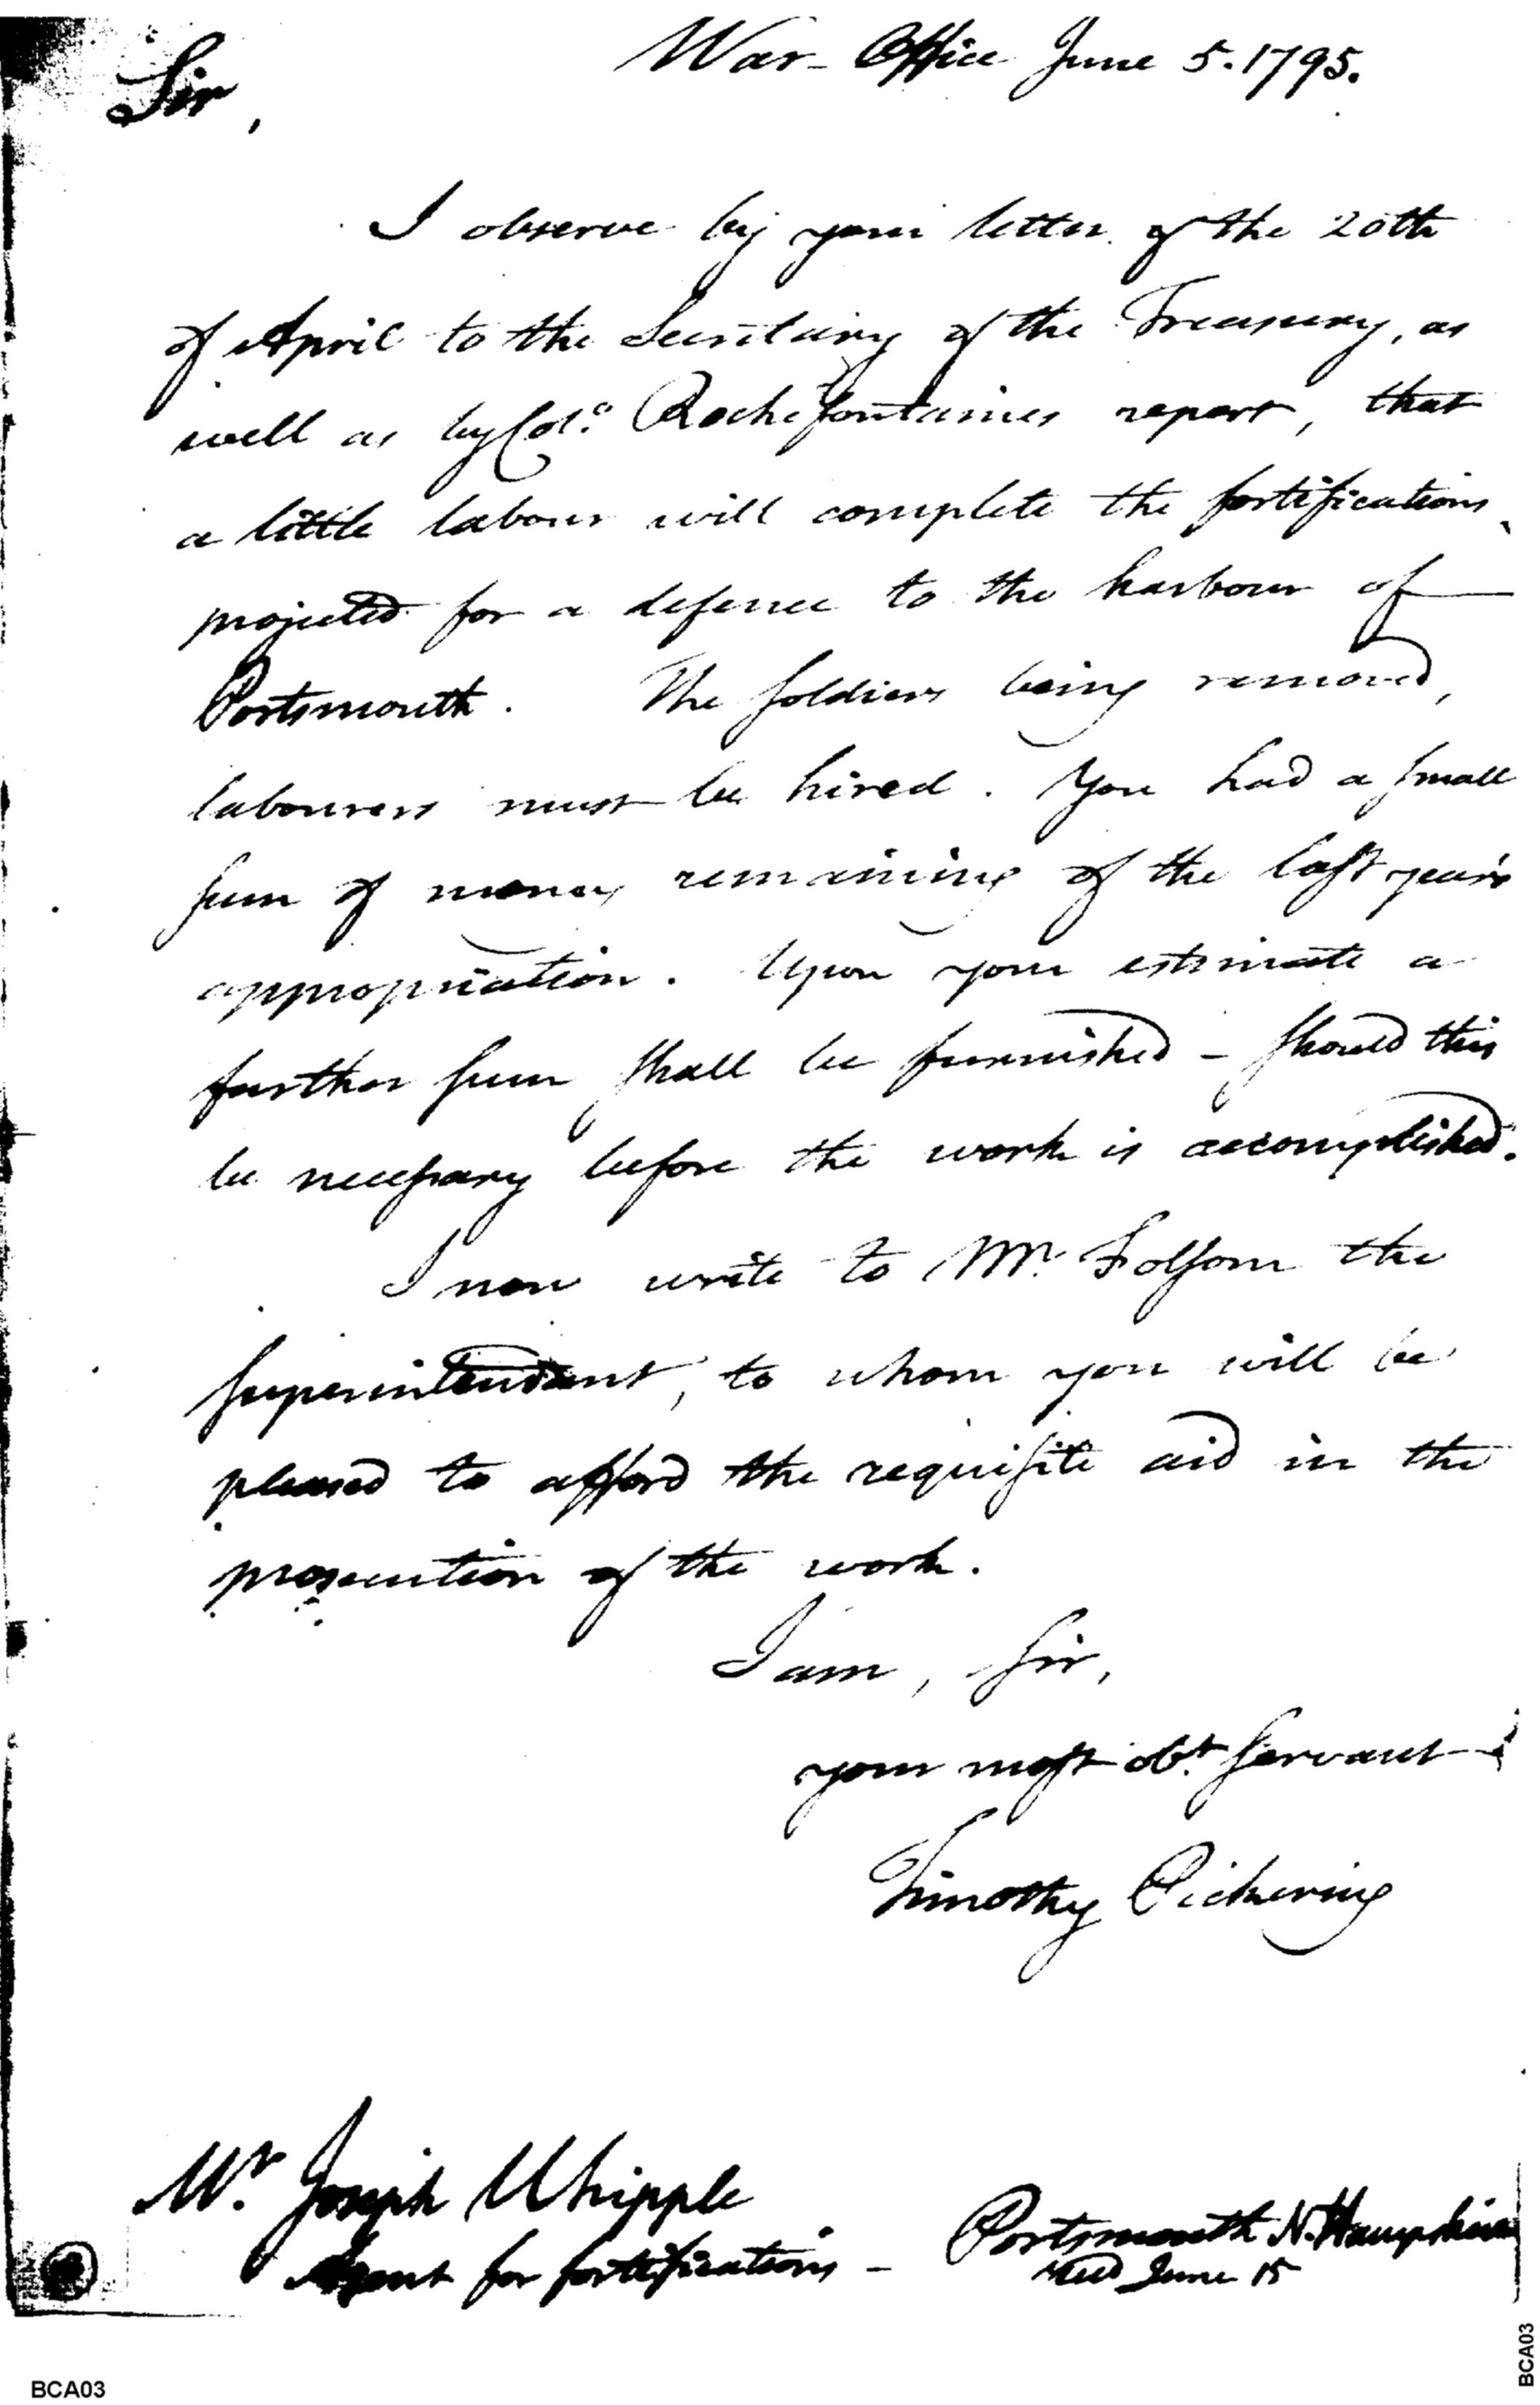 War-Office June 5. 1795.
Sir,
I observe by your letter of the 20th
of April to the Secretary of the Treasury, as
well as by Colo. Rochefontaines report, that
a little labour will complete the fortifications
projected for a defence to the harbour of
Portsmouth. The soldiers being removed,
labourers must be hired. You had a small
sum of money remaining of the last year's
appropriation. Upon your estimate a
further sum shall be furnished - should this
be necessary before the work is accomplished.
I now write to Mr. Folsom the
superintendant, to whom you will be
pleased to afford the requisite aid in the
prosecution of the work.
I am, sir,
your most obt. servant
Timothy Pickering
Mr. Joseph Whipple
Agent for fortifications - Portsmouth N. Hampshire
recd June 15
BCA03
BCA03